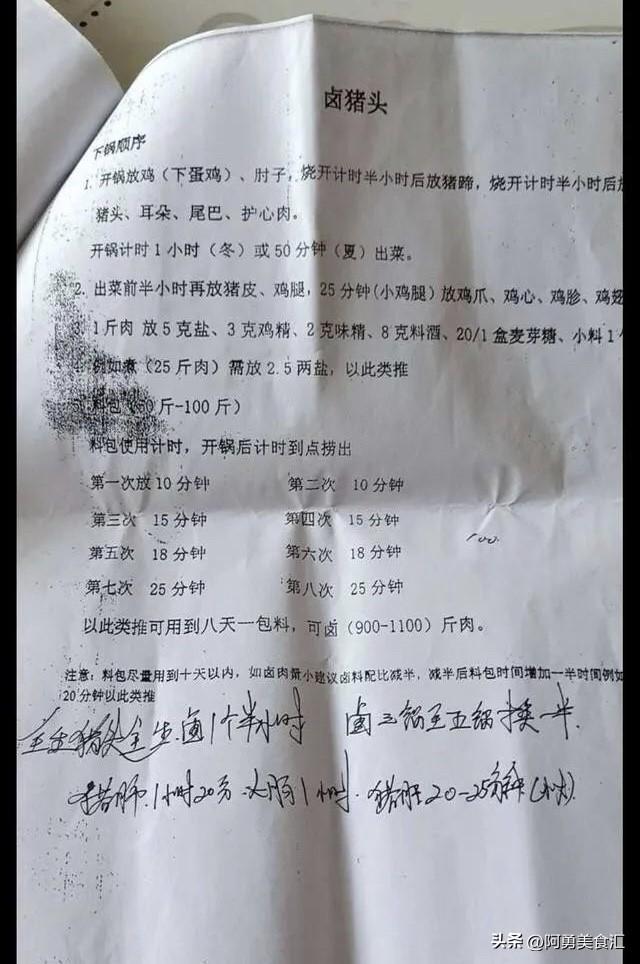 卤猪头
下锅顺序
1. 开锅放鸡（下蛋鸡）、肘子，烧开计时半小时后放猪蹄，烧开计时半小时后放
猪头、耳朵、尾巴、护心肉。
开锅计时1小时（冬）或50分钟（夏）出菜。
2. 出菜前半小时再放猪皮、鸡腿，25分钟(小鸡腿）放鸡爪、鸡心、鸡胗、鸡翅
3. 1斤肉 放5克盐、3克鸡精、2克味精、8克料酒、20/1盒麦芽糖、小料1
4. 例如煮（25斤肉）需放2.5两盐，以此类推
料包（ 0斤-100斤）
料包使用计时，开锅后计时到点捞出
第一次放10分钟 第二次 10分钟
第三次 15分钟 第四次 15分钟
100.
第五次 18分钟 第六次 18分钟
第七次 25分钟 第八次 25分钟
以此类推可用到八天一包料，可卤（900-1100）斤肉。
注意：料包尽量用到十天以内，如卤肉量小建议卤料配比减半，减半后料包时间增加一半时间例如
20分钟以此类推
猪头 生卤1个半小时 卤三锅至五锅换一半.
猪肺.1小时20分 大肠1小时. 猪肝20-25分钟(小火).
头条 @阿勇美食汇